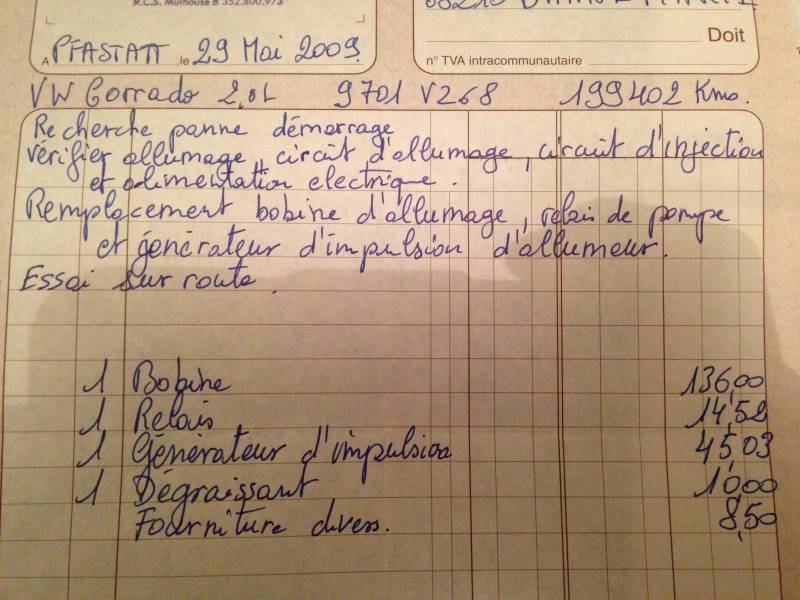 R.C.S. Mulhouse B 352,800,973
A PFASTATT, le 29 Mai 2009.
Doit
n° TVA intracommunautaire
VW Corrado 2.0L 9701 V268 199402 Kms.
Recherche panne démarrage
vérifier allumage, circuit d'allumage, circuit d'injection
et alimentation electrique.
Remplacement bobine d'allumage, relais de pompe
et générateur d'impulsion d'allumeur.
Essai sur route.
1 Bobine 136,00
1 Relais 14,52
1 Générateur d'impulsion 45,03
1 Dégraissant 10,00
Fourniture divers. 8,50